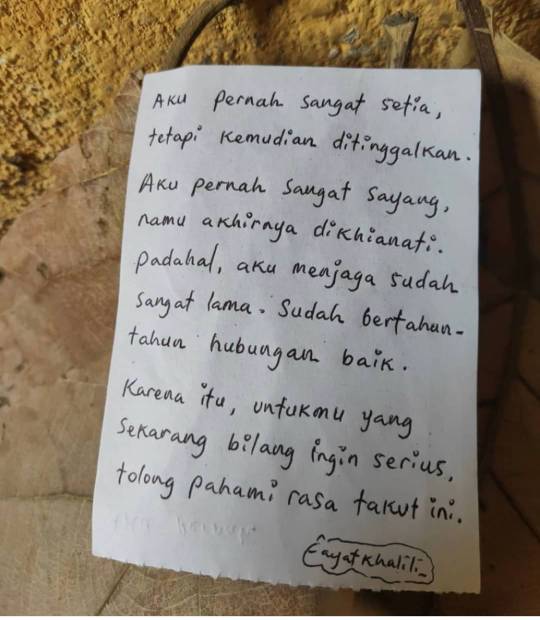 Aku pernah sangat setia,
tetapi kemudian ditinggalkan.
Aku pernah sangat sayang,
namu akhirnya dikhianati.
padahal, aku menjaga sudah
sangat lama. Sudah bertahun-
tahun hubungan baik.
Karena itu, untukmu yang
sekarang bilang ingin serius,
tolong pahami rasa takut ini.
Eayatkhalili_